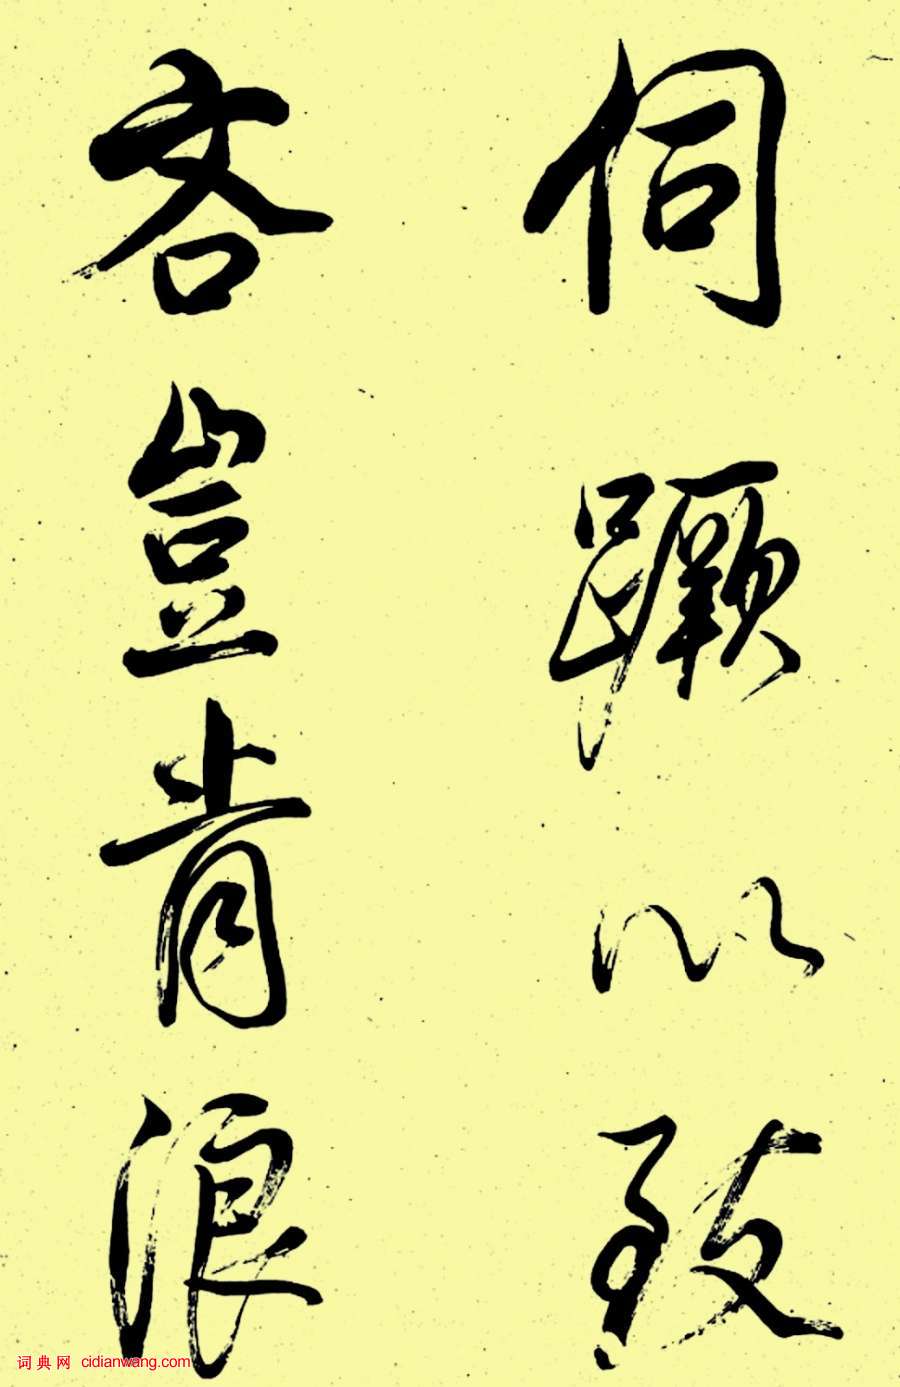 伺蹶以致
吝豈肯浪
词典网 cidianwang.com